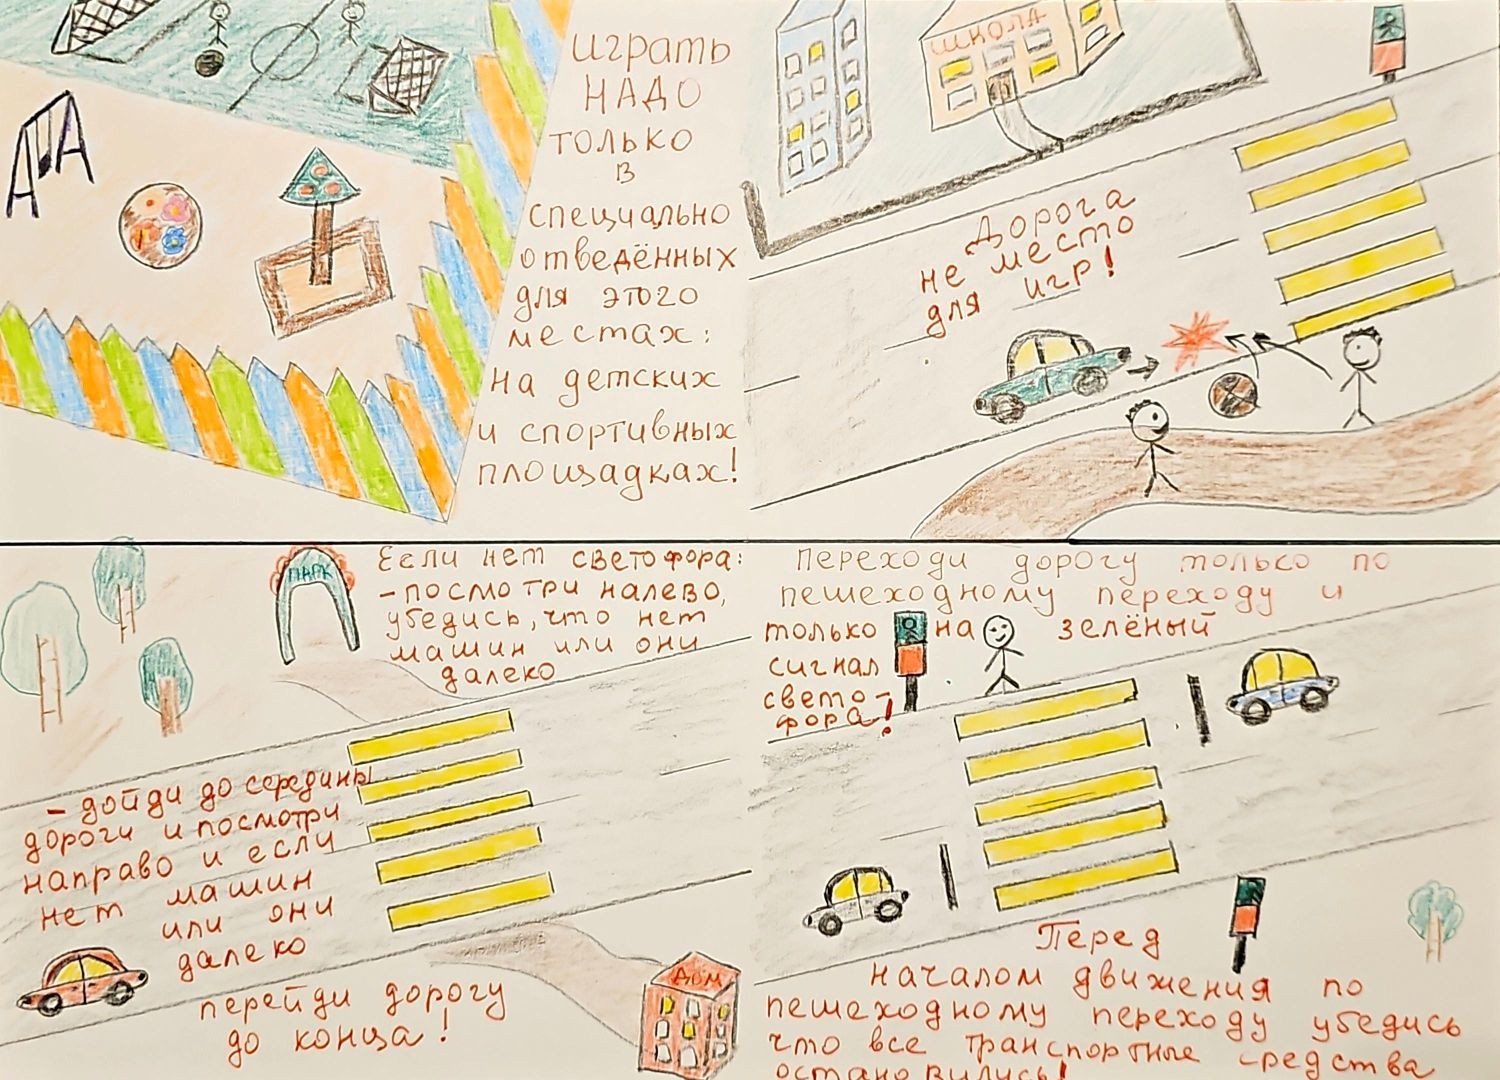 играть
НАДО
только
в
специально
отведённых
для этого
местах:
на детских
и спортивных
площадках!
ШКОЛА
Дорога
не место
для игр!
ПАРК
Если нет светофора:
- посмотри налево,
убедись, что нет
машин или они
далеко
- дойди до середины
дороги и посмотри
направо и если
нет машин
или они
далеко
перейди дорогу
до конца!
ДОМ
переходи дорогу только по
пешеходному переходу и
только на зелёный
сигнал
свето-
фора!
Перед
началом движения по
пешеходному переходу убедись
что все транспортные средства
остановились!